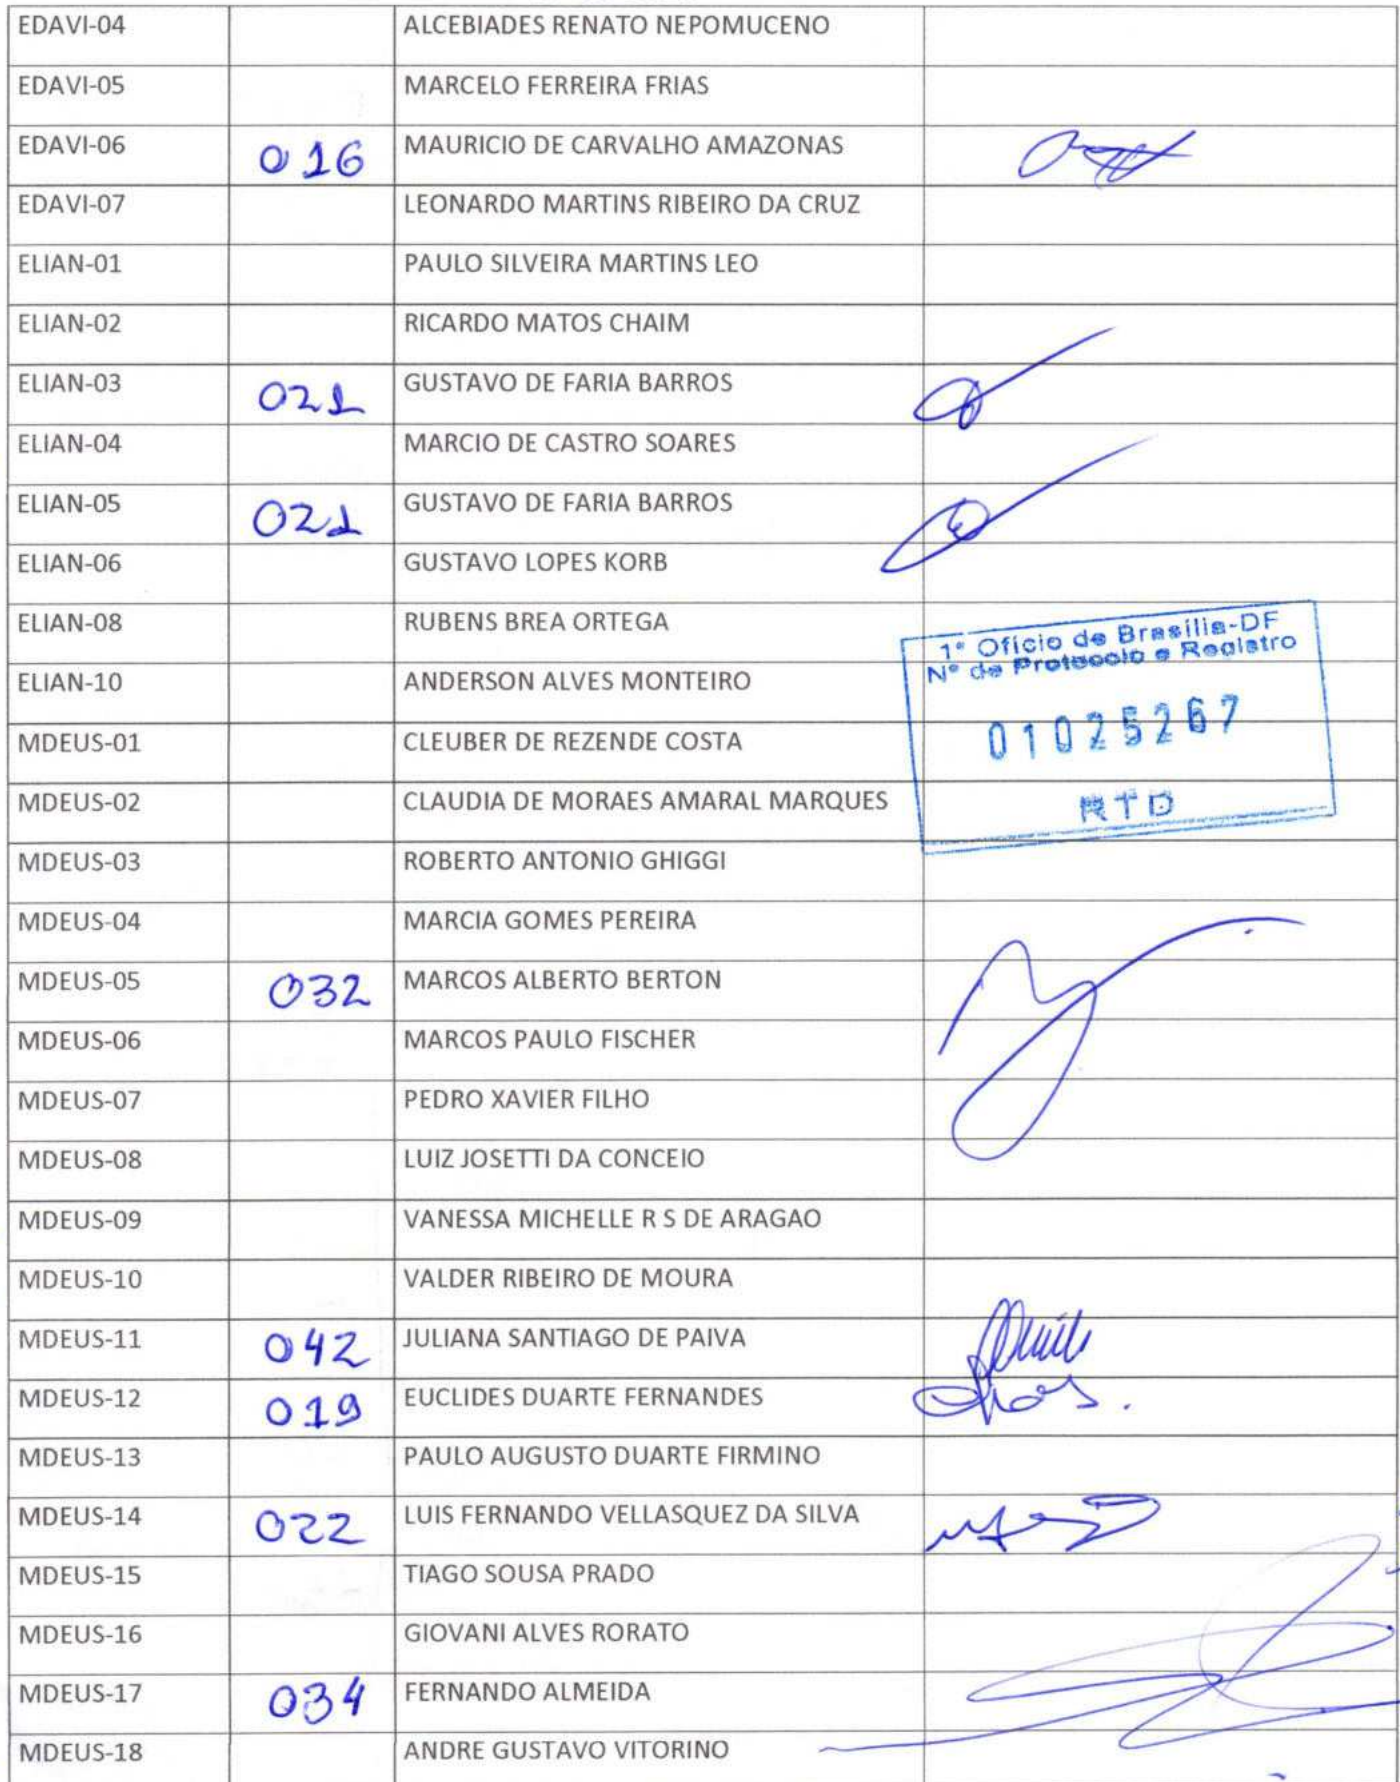 EDAVI-04 ALCEBIADES RENATO NEPOMUCENO
EDAVI-05 MARCELO FERREIRA FRIAS
EDAVI-06 016 MAURICIO DE CARVALHO AMAZONAS
EDAVI-07 LEONARDO MARTINS RIBEIRO DA CRUZ
ELIAN-01 PAULO SILVEIRA MARTINS LEO
ELIAN-02 RICARDO MATOS CHAIM
ELIAN-03 021 GUSTAVO DE FARIA BARROS
ELIAN-04 MARCIO DE CASTRO SOARES
ELIAN-05 021 GUSTAVO DE FARIA BARROS
ELIAN-06 GUSTAVO LOPES KORB
ELIAN-08 RUBENS BREA ORTEGA
1º Ofício de Brasília-DF
Nº de Protocolo e Registro
ELIAN-10 ANDERSON ALVES MONTEIRO
01025267
MDEUS-01 CLEUBER DE REZENDE COSTA
MDEUS-02 CLAUDIA DE MORAES AMARAL MARQUES
RTD
MDEUS-03 ROBERTO ANTONIO GHIGGI
MDEUS-04 MARCIA GOMES PEREIRA
MDEUS-05 032 MARCOS ALBERTO BERTON
MDEUS-06 MARCOS PAULO FISCHER
MDEUS-07 PEDRO XAVIER FILHO
MDEUS-08 LUIZ JOSETTI DA CONCEIO
MDEUS-09 VANESSA MICHELLE R S DE ARAGAO
MDEUS-10 VALDER RIBEIRO DE MOURA
MDEUS-11 042 JULIANA SANTIAGO DE PAIVA
MDEUS-12 019 EUCLIDES DUARTE FERNANDES
MDEUS-13 PAULO AUGUSTO DUARTE FIRMINO
MDEUS-14 022 LUIS FERNANDO VELLASQUEZ DA SILVA
MDEUS-15 TIAGO SOUSA PRADO
MDEUS-16 GIOVANI ALVES RORATO
MDEUS-17 034 FERNANDO ALMEIDA
MDEUS-18 ANDRE GUSTAVO VITORINO